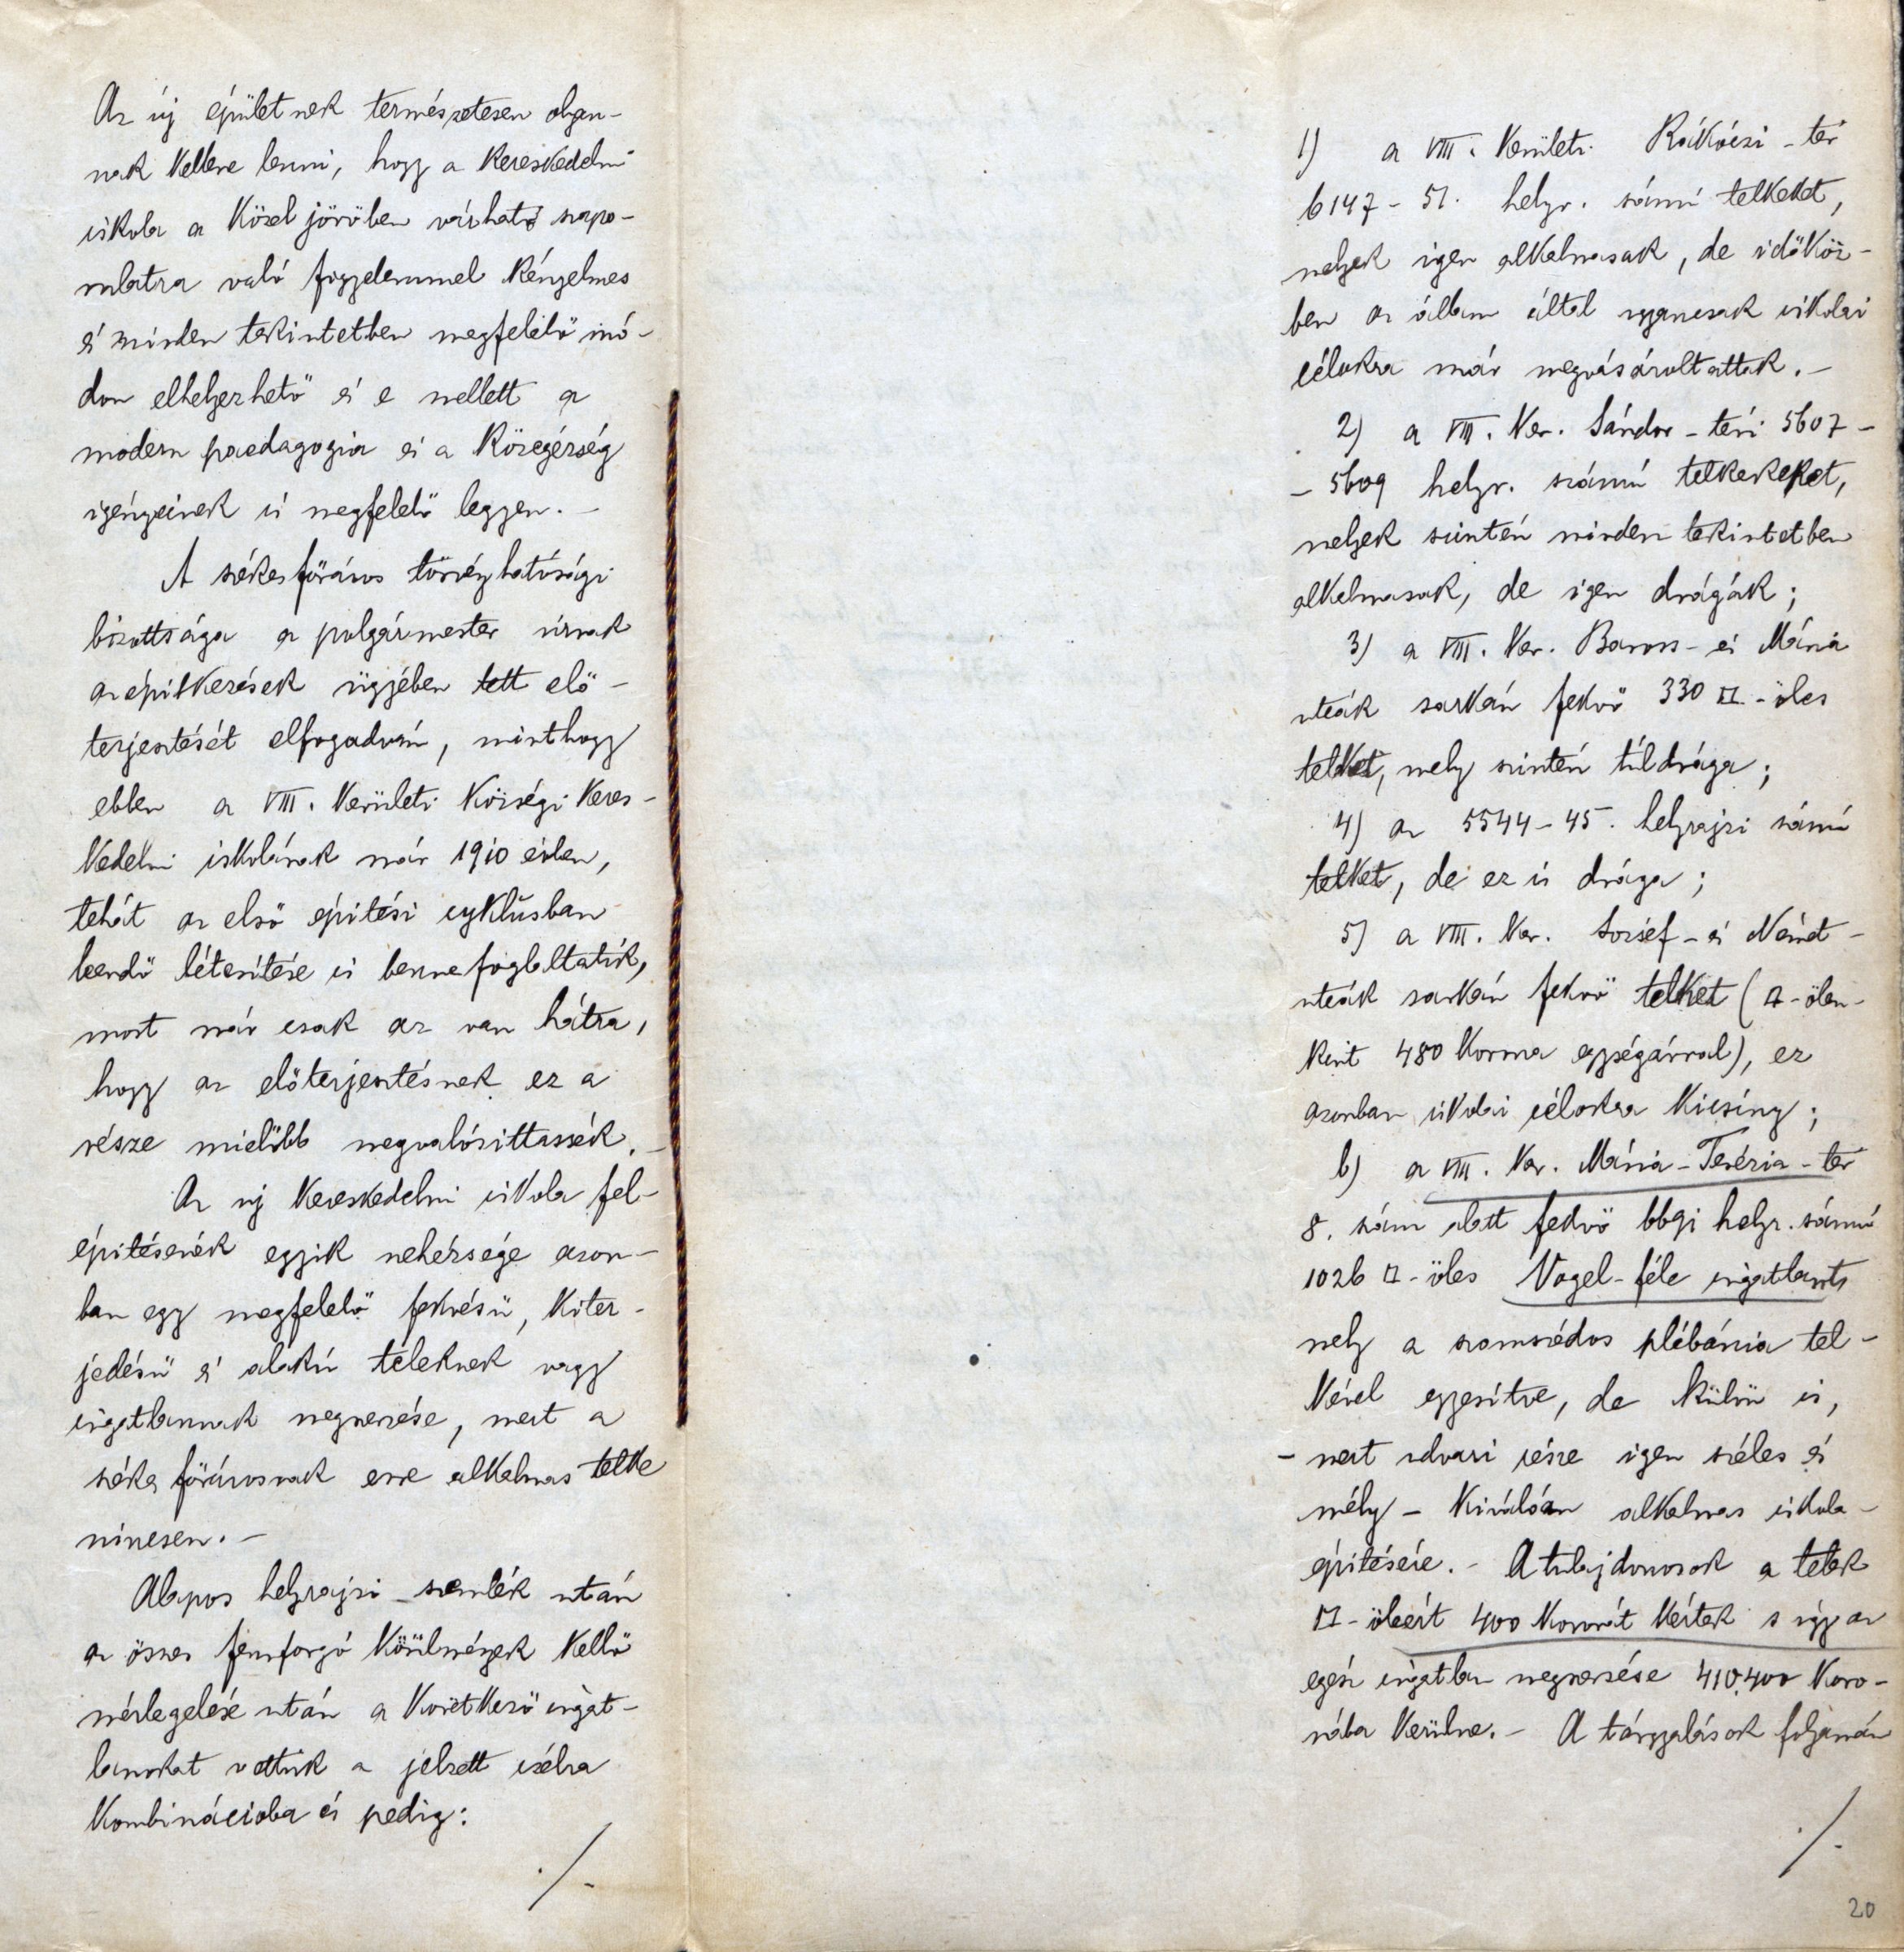 Az új épületnek természetesen olyan-
nak kellene lenni, hogy a kereskedelmi
iskola a közel jövőben várható szapo-
rulatra való figyelemmel kényelmes
és minden tekintetben megfelelő mó-
don elhelyezhető és e mellett a
modern paedagogia és a közegészség
igényeinek is megfelelő legyen. -
A székesfőváros törvényhatósági
bizottsága a polgármester úrnak
az építkezések ügyében tett elő-
terjesztését elfogadván, minthogy
ebben a VIII. kerületi községi keres-
kedelmi iskolának már 1910 évben,
tehát az első építési cyklusban
leendő létesítése is bennefoglaltatik,
most már csak az van hátra,
hogy az előterjesztésnek ez a
része mielőbb megvalósíttassék. -
Az uj kereskedelmi iskola fel-
építésének egyik nehézsége azon-
ban egy megfelelő fekvésü, kiter-
jedésü és alakú teleknek vagy
ingatlannak megszerzése, mert a
székesfővárosnak erre alkalmas telke
nincsen. -
Alapos helyrajzi szemlék után
az összes fennforgó körülmények kellő
mérlegelése után a következő ingat-
lanokat vettük a jelzett célra
kombinációba és pedig:
./.
1) a VIII. kerületi Rákóczi-tér
6147-51. helyr. számú telkeket,
melyek igen alkalmasak, de időköz-
ben az állam által ugyancsak iskolai
célokra már megvásároltattak. -
2) a VIII. ker. Sándor-téri 5607-
- 5609 helyr. számú telkekeket,
melyek szintén minden tekintetben
alkalmasak, de igen drágák;
3) a VIII. ker. Baross- és Mária
utcák sarkán fekvő 330 □-öles
telket, mely szintén túldrága;
4) az 5544-45. helyrajzi számú
telket, de ez is drága;
5) a VIII. ker. József- és Német-
utcák sarkán fekvő telket (□-ölen-
kint 480 korona egységárral), ez
azonban iskolai célokra kicsiny;
6) a VIII. ker. Mária-Terézia-tér
8. szám alatt fekvő 6691 helyr. számú
1026 □-öles Vogel-féle ingatlant,
mely a szomszédos plébánia tel-
kével egyesítve, de külön is,
- mert udvari része igen széles és
mély - kiválóan alkalmas iskola-
építésére. - A tulajdonosok a telek
□-öleért 400 koronát kértek s így az
egész ingatlan megszerzése 410.400 koro-
nába kerülne. - A tárgyalások folyamán
./.
20